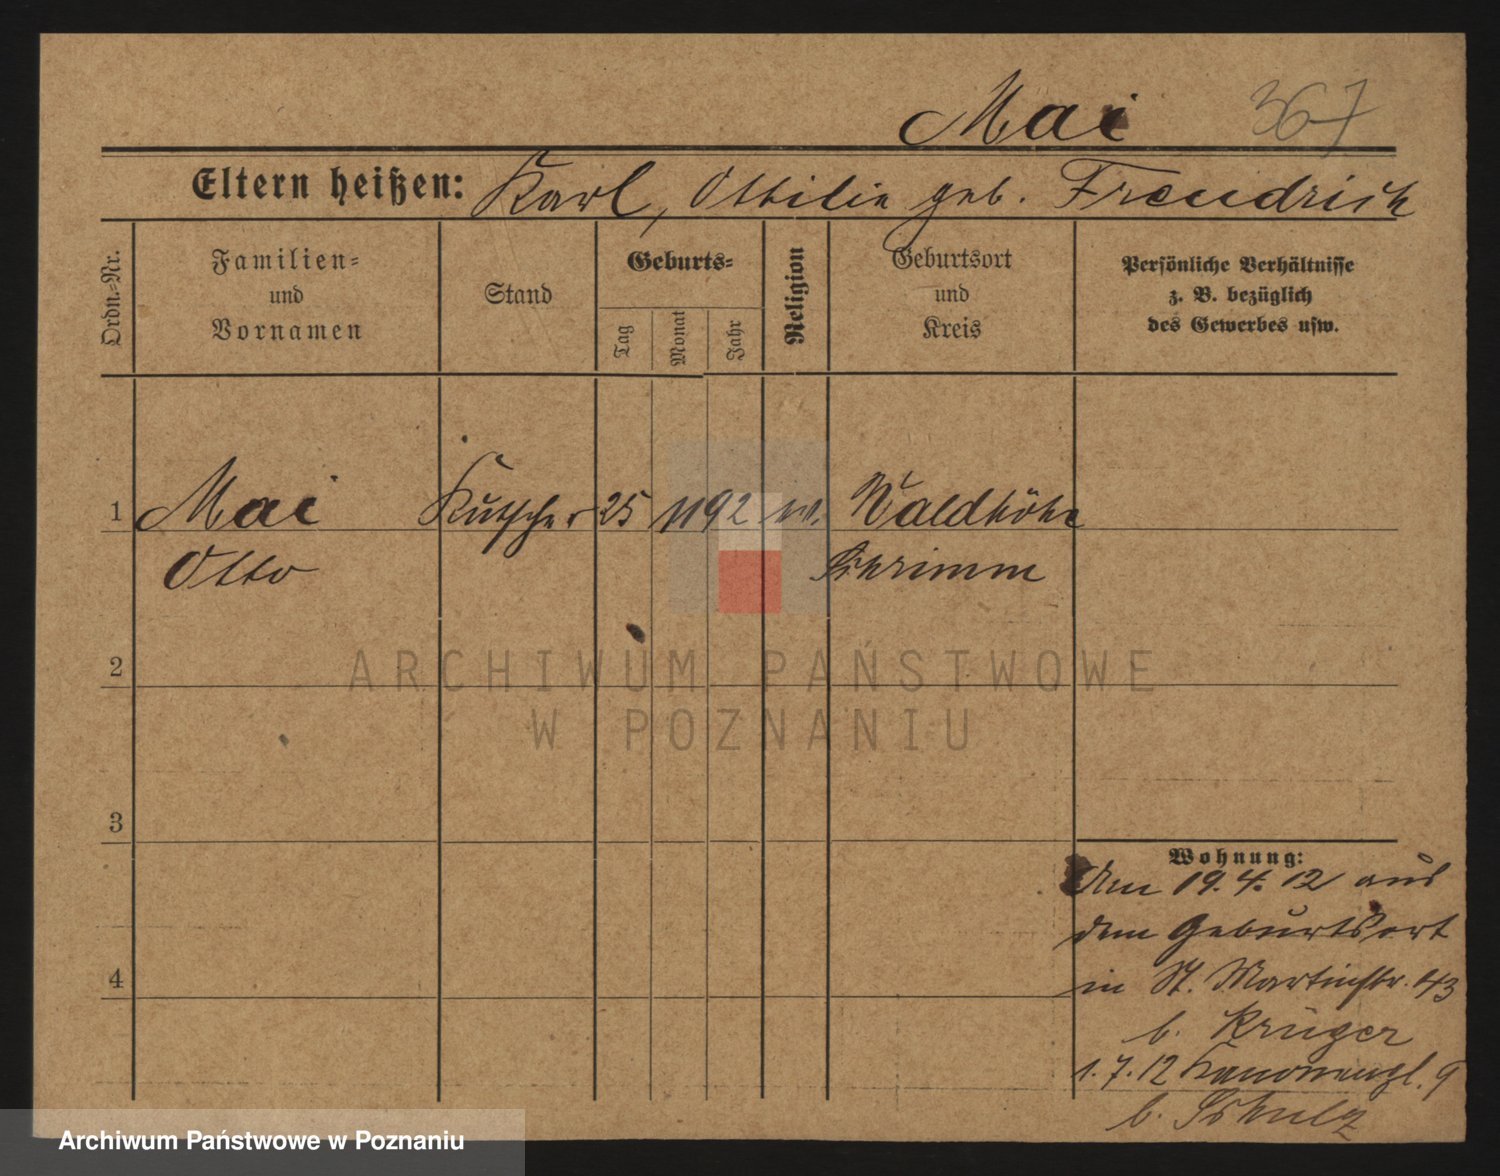 Mai 367
Eltern heißen: Karl, Ottilie geb. Freudrich
Ordn.-Nr.
Familien-
und
Vornamen
Stand
Geburts-
Tag
Monat
Jahr
Religion
Geburtsort
und
Kreis
Persönliche Verhältnisse
z. B. bezüglich
des Gewerbes usw.
1 Mai Kutscher 25 11 92 ev. Waldhöhe
Otto Schrimm
2
3
4
Wohnung:
Am 19.4.12 aus
dem Geburtsort
in St. Martinstr. 43
b. Krüger
1.7.12 Kanonenpl. 9
b. Schulz
ARCHIWUM PAŃSTWOWE
W POZNANIU
Archiwum Państwowe w Poznaniu